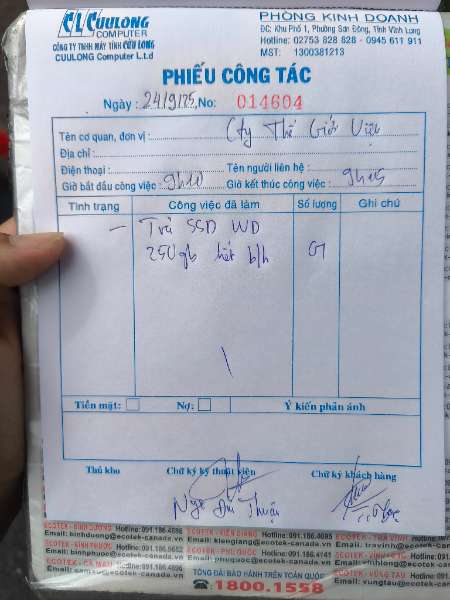 CLC CUULONG COMPUTER
CÔNG TY TNHH MÁY TÍNH CỬU LONG
CUULONG Computer L.t.d
PHÒNG KINH DOANH
ĐC: Khu Phố 1, Phường Sơn Đông, Tỉnh Vĩnh Long
Hotline: 02753 828 828 - 0945 611 911
MST: 1300381213
PHIẾU CÔNG TÁC
Ngày: 24/9/25, No: 014604
Tên cơ quan, đơn vị: Cty Thế Giới Việt
Địa chỉ:
Điện thoại: Tên người liên hệ:
Giờ bắt đầu công việc: 9h10 Giờ kết thúc công việc: 9h15
Tình trạng Công việc đã làm Số lượng Ghi chú
- Trả SSD WD
250gb hết b/h 01
Tiền mặt: Nợ: Ý kiến phản ánh
Thủ kho Chữ ký kỹ thuật viên Chữ ký khách hàng
Ngô Đức Thuận
ECOTEK - BÌNH DƯƠNG Hotline: 091.186.4686 ECOTEK - KIÊN GIANG Hotline: 091.186.4085 ECOTEK - TRÀ VINH
Email: binhduong@ecotek-canada.vn Email: kiengiang@ecotek-canada.vn Email: travinh@ecotek
ECOTEK - BÌNH PHƯỚC Hotline: 091.186.5652 ECOTEK - PHÚ QUỐC Hotline: 091.186.4141
Email: binhphuoc@ecotek-canada.vn Email: phuquoc@ecotek-canada.vn
ECOTEK - CÀ MAU
Email: camau@ecotek-canada.vn
TỔNG ĐÀI BẢO HÀNH TRÊN TOÀN QUỐC
1800.1558
ECOTEK - VŨNG TÀU
Email: vungtau@ecotek